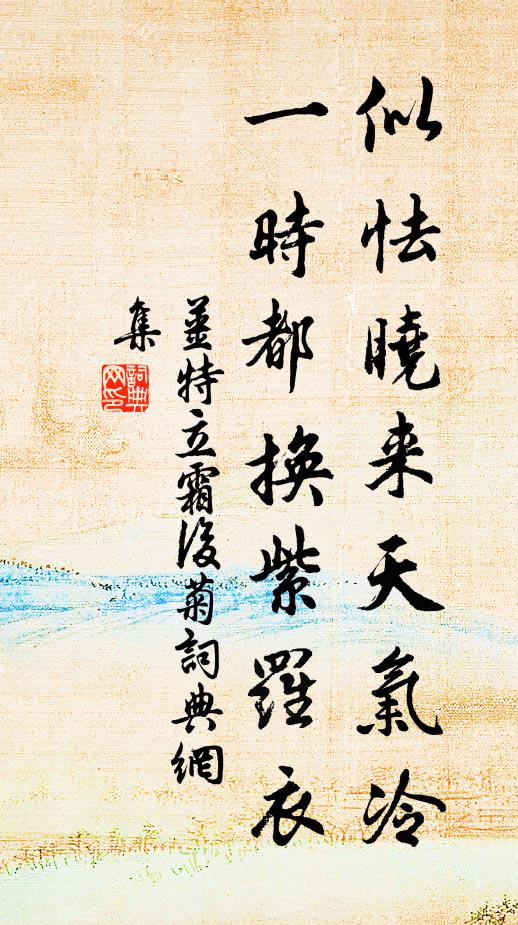 似怯曉来天氣冷
一時都換紫羅衣
姜特立霜後菊詞典網
集
詞典
网印